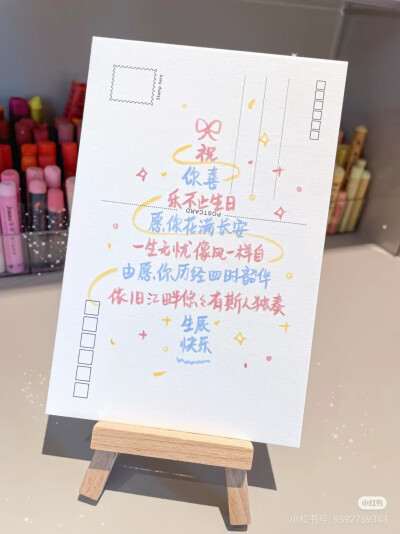 Stamp here
祝
你喜
乐不止生日
POSTCARD
愿你花满长安
一生无忧像风一样自
由愿你历经四时韵华
依旧江畔你仍有斯人独奏
生辰
快乐
小红书
小红书号: 9592769343